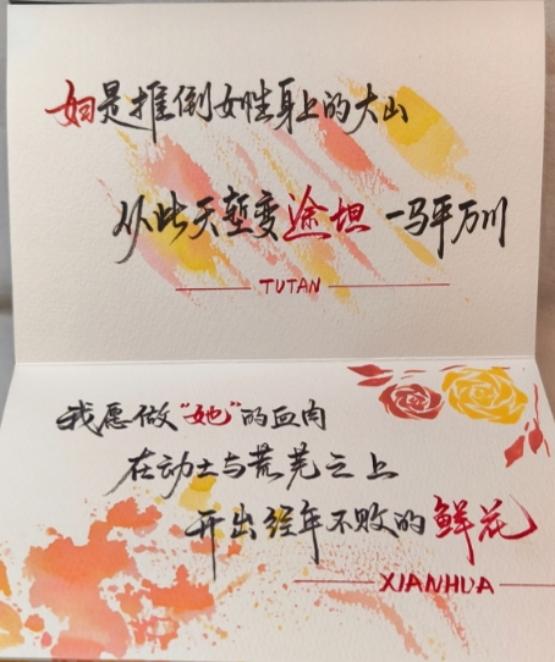 妇是推倒女性身上的大山
从此天堑变途坦 一马平万川
TUTAN
我愿做“她”的血肉
在动土与荒芜之上
开出经年不败的鲜花
XIANHUA